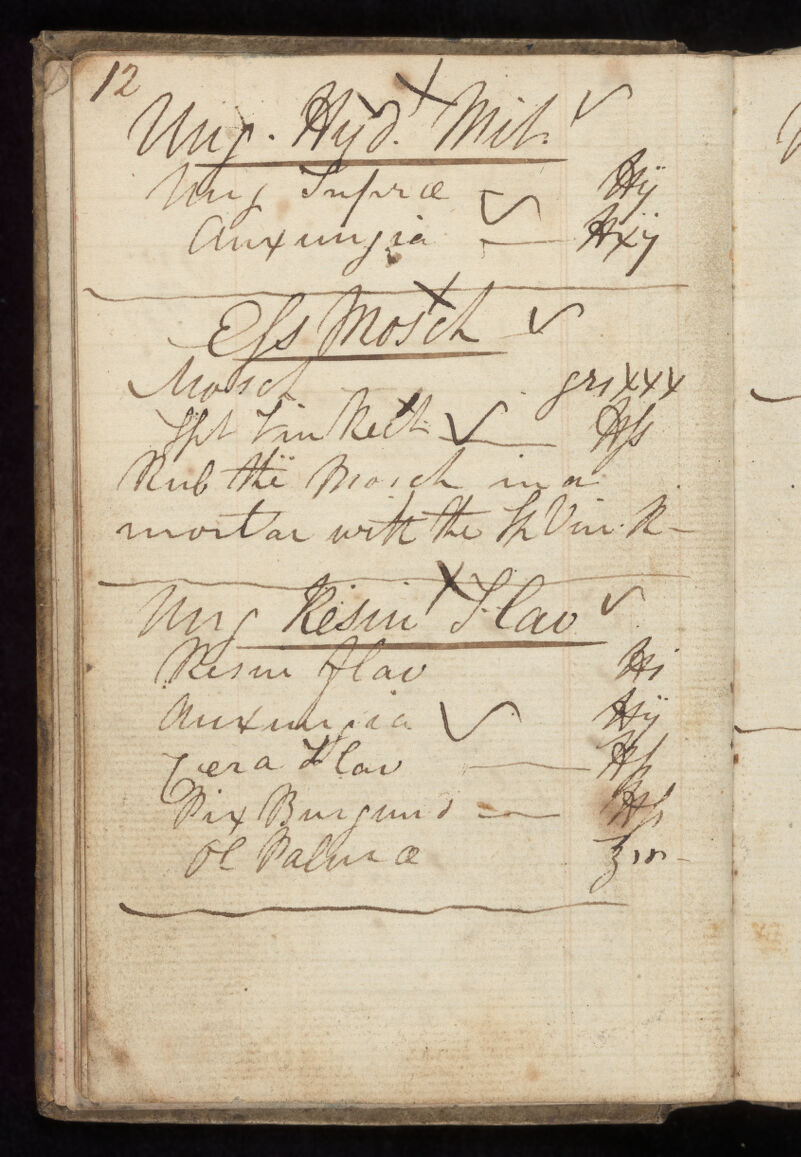 12
Ung. Hyd. Mit.
Ung Supræ ℔ij
Auxungia ℔xij
Ess Mosch
Mosch grs xxx
Spt Vin Rect ℔ß
Rub the Mosch in a
mortar with the Sp Vin. R—
Ung Resin Flav
Resin flav ℔i
Auxungia ℔ij
Cera Flav ℔ß
Pix Burgund ℔ß
Ol Palmæ